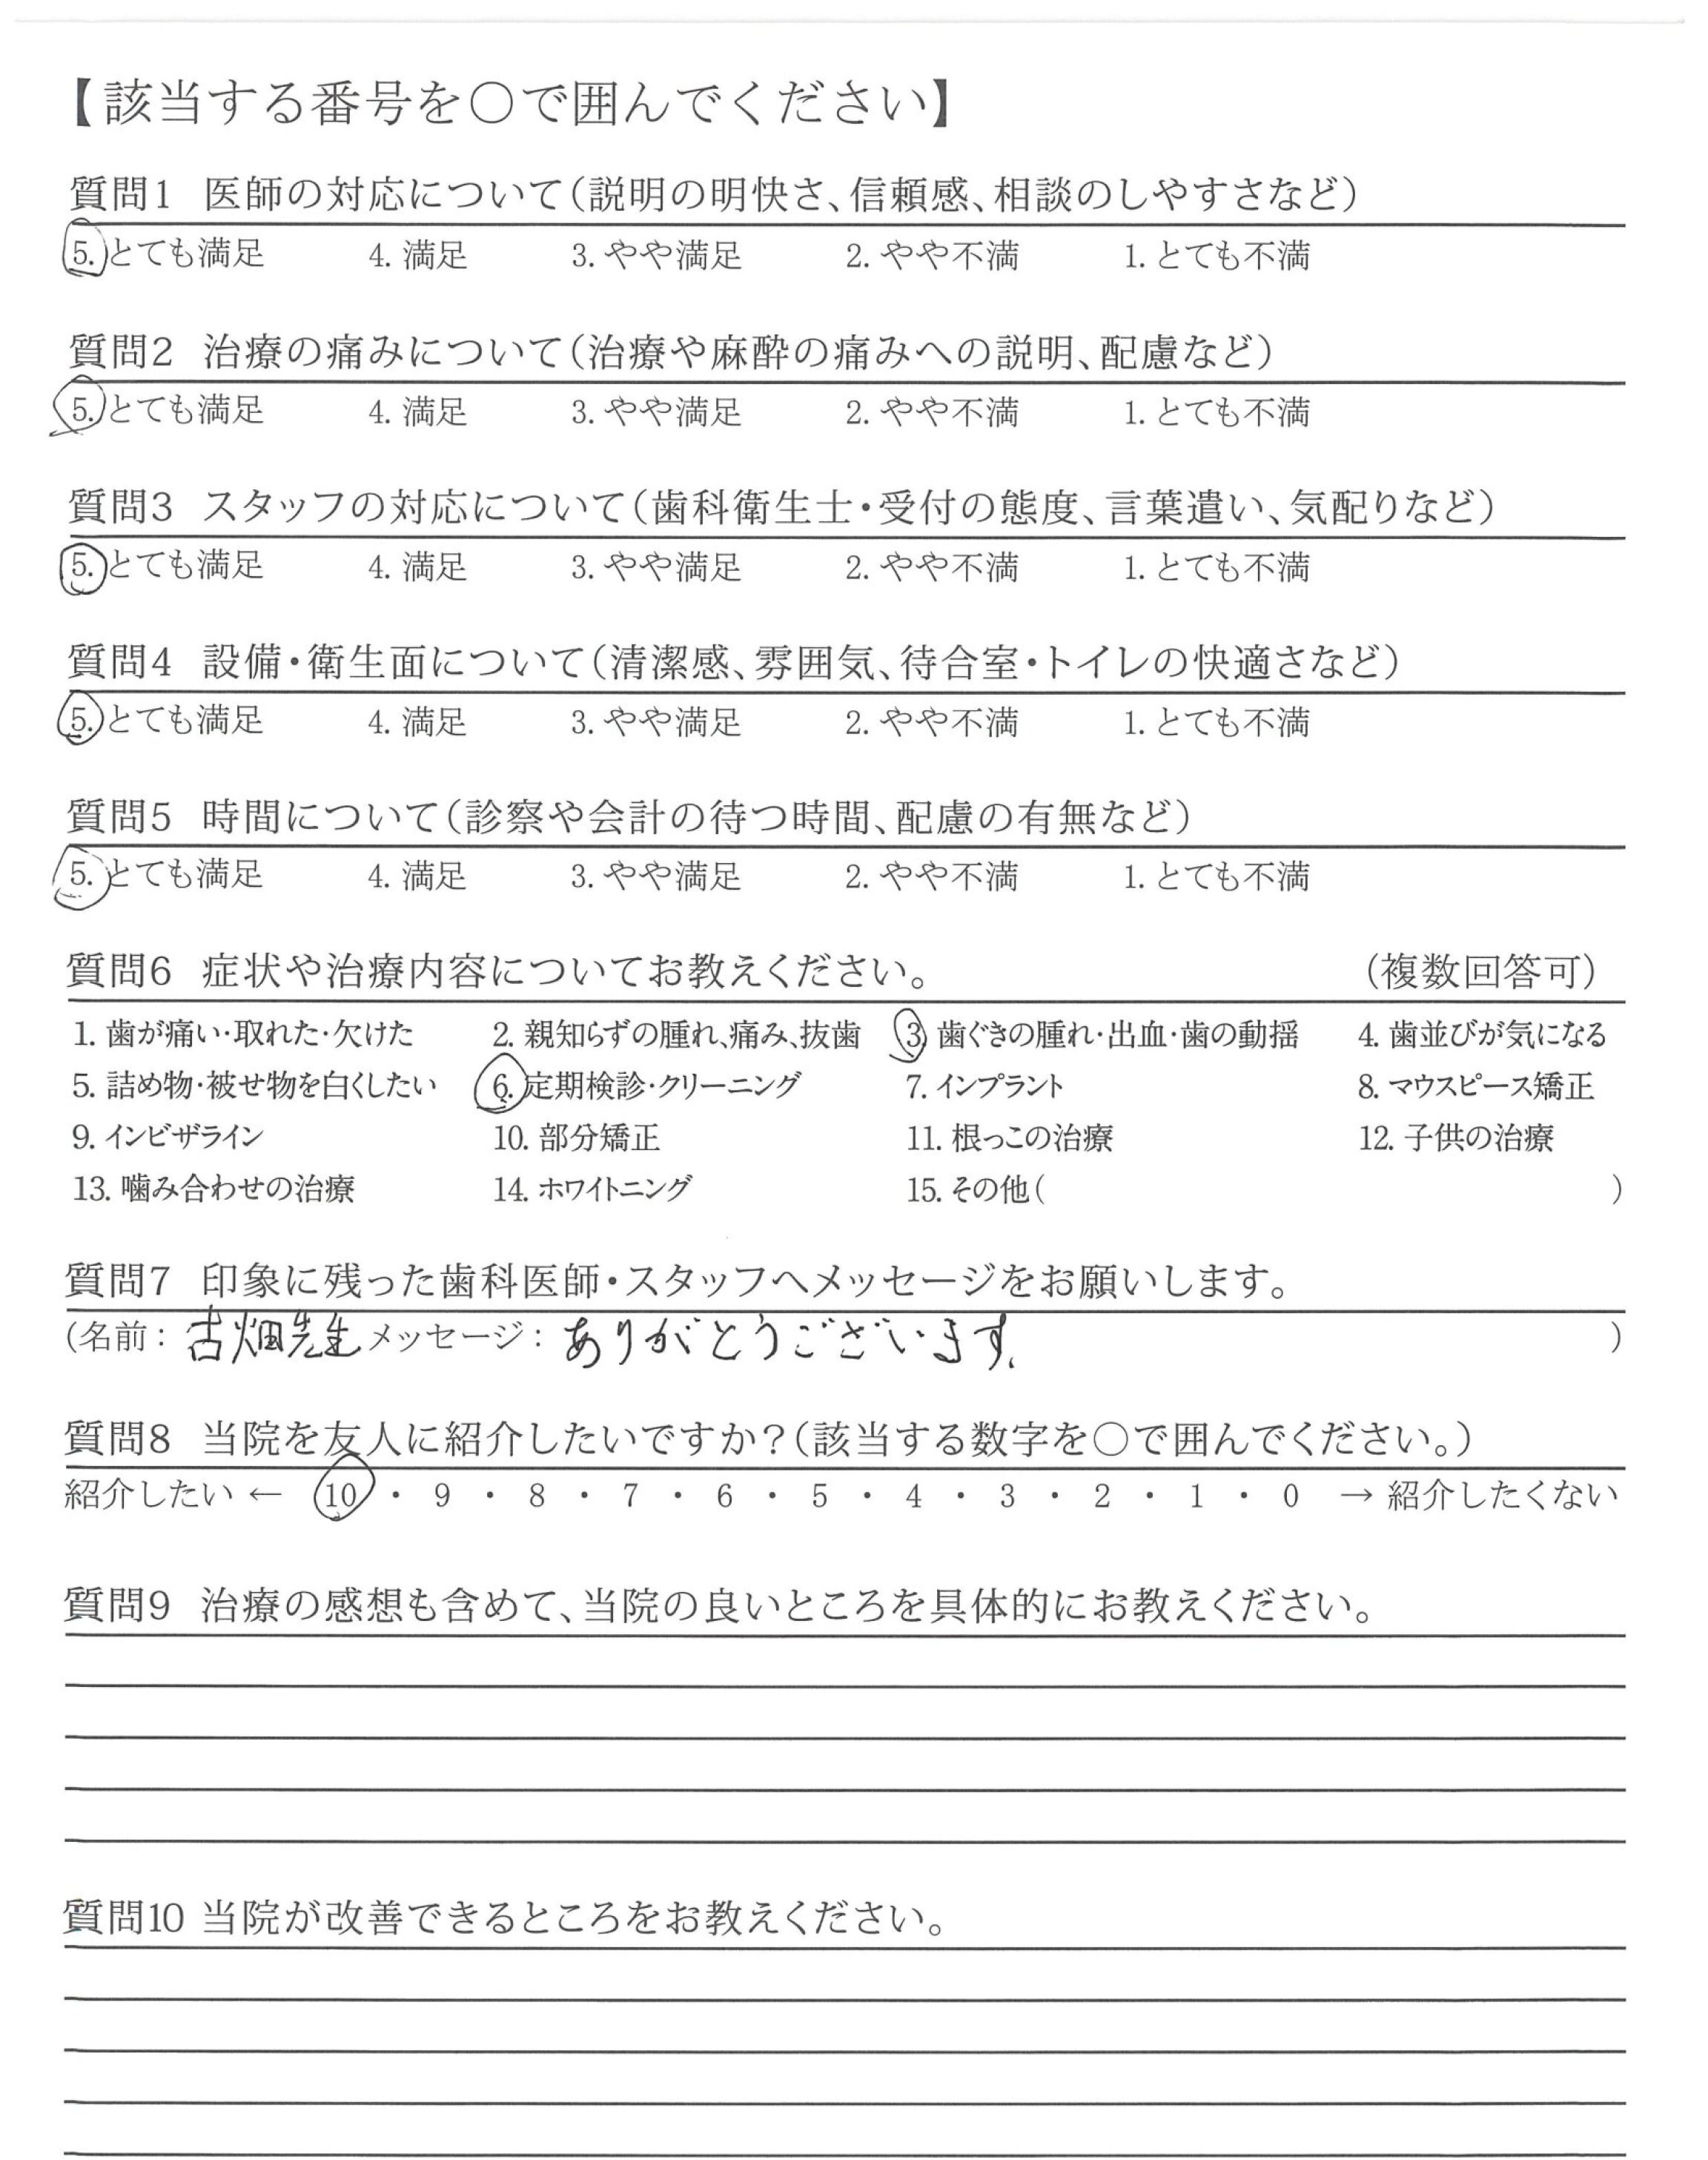 【該当する番号を○で囲んでください】
質問1 医師の対応について(説明の明快さ、信頼感、相談のしやすさなど)
5. とても満足 4. 満足 3. やや満足 2. やや不満 1. とても不満
質問2 治療の痛みについて(治療や麻酔の痛みへの説明、配慮など)
5. とても満足 4. 満足 3. やや満足 2. やや不満 1. とても不満
質問3 スタッフの対応について(歯科衛生士・受付の態度、言葉遣い、気配りなど)
5. とても満足 4. 満足 3. やや満足 2. やや不満 1. とても不満
質問4 設備・衛生面について(清潔感、雰囲気、待合室・トイレの快適さなど)
5. とても満足 4. 満足 3. やや満足 2. やや不満 1. とても不満
質問5 時間について(診察や会計の待つ時間、配慮の有無など)
5. とても満足 4. 満足 3. やや満足 2. やや不満 1. とても不満
質問6 症状や治療内容についてお教えください。 (複数回答可)
1. 歯が痛い・取れた・欠けた 2. 親知らずの腫れ、痛み、抜歯 3. 歯ぐきの腫れ・出血・歯の動揺 4. 歯並びが気になる
5. 詰め物・被せ物を白くしたい 6. 定期検診・クリーニング 7. インプラント 8. マウスピース矯正
9. インビザライン 10. 部分矯正 11. 根っこの治療 12. 子供の治療
13. 噛み合わせの治療 14. ホワイトニング 15. その他( )
質問7 印象に残った歯科医師・スタッフへメッセージをお願いします。
(名前: 古畑先生 メッセージ: ありがとうございます。 )
質問8 当院を友人に紹介したいですか?(該当する数字を○で囲んでください。)
紹介したい ← 10 ・ 9 ・ 8 ・ 7 ・ 6 ・ 5 ・ 4 ・ 3 ・ 2 ・ 1 ・ 0 → 紹介したくない
質問9 治療の感想も含めて、当院の良いところを具体的にお教えください。
質問10 当院が改善できるところをお教えください。